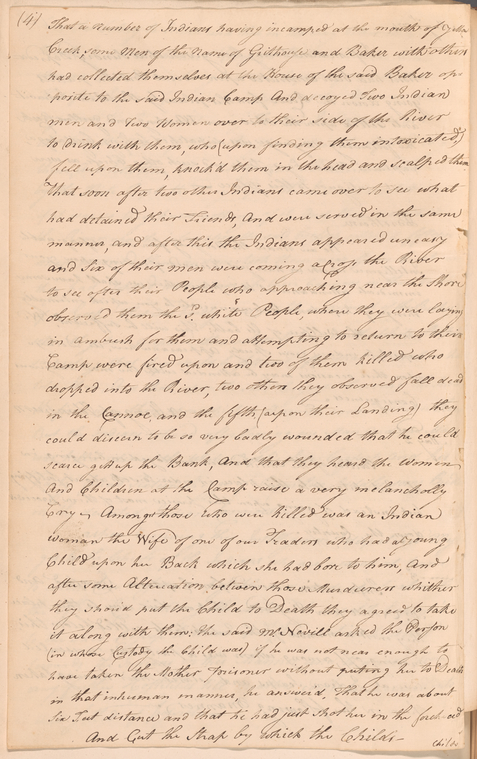 (4) That a number of Indians having incamped at the mouth of Yellow
Creek, some Men of the Name of Gilthouse and Baker with others
had collected themselves at the House of the said Baker op-
posite to the said Indian Camp And decoyed Two Indian
men and two Women over to their side of the River
to drink with them, who (upon finding them intoxicated)
fell upon them, knock'd them in the head and scalped them
That soon after two other Indians came over to see what
had detained their Friends, And were served in the same
manner, and after this the Indians appeared uneasy
and Six of their men were coming across the River
to see after their People who approaching near the Shore
observed them the sd. white People, where they were laying
in ambush for them and attempting to return to their
Camp were fired upon and two of them killed who
dropped into the River, two others they observed fall dead
in the Cannoe, and the fifth (upon their Landing) they
could discern to be so very badly wounded that he could
scarce get up the Bank, And that they heard the Women
And Children at the Camp raise a very melancholly
Cry. Amongst those who were killed was an Indian
woman the Wife of one of our Traders who had a young
Child upon her Back which she had bore to him, And
after some Altercation between those Murderers whither
they should put the Child to Death they agreed to take
it along with them: the said Mr. Nevill asked the Person
(in whose Custody the Child was) if he was not near enough to
have taken the Mother prisoner without puting her to Death
in that inhuman manner, he answerd That he was about
Six Feet distance and that he had just shot her in the forehead
And Cut the Strap by which the Childs
Childs